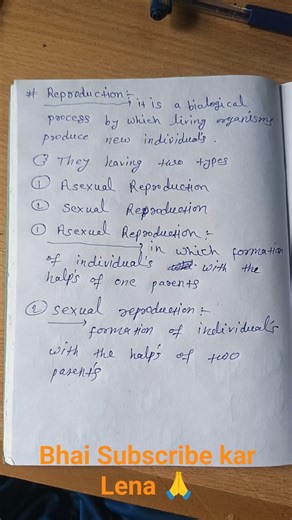 # Reproduction :-
it is a biological
process by which living organisms
produce new individual's.
They having two types
① Asexual Reproduction
② Sexual Reproduction
① Asexual Reproduction :-
in which formation
of individual's with the
halp's of one parents
② Sexual reproduction :-
formation of individual's
with the halp's of two
parent's
Bhai Subscribe kar
Lena 🙏